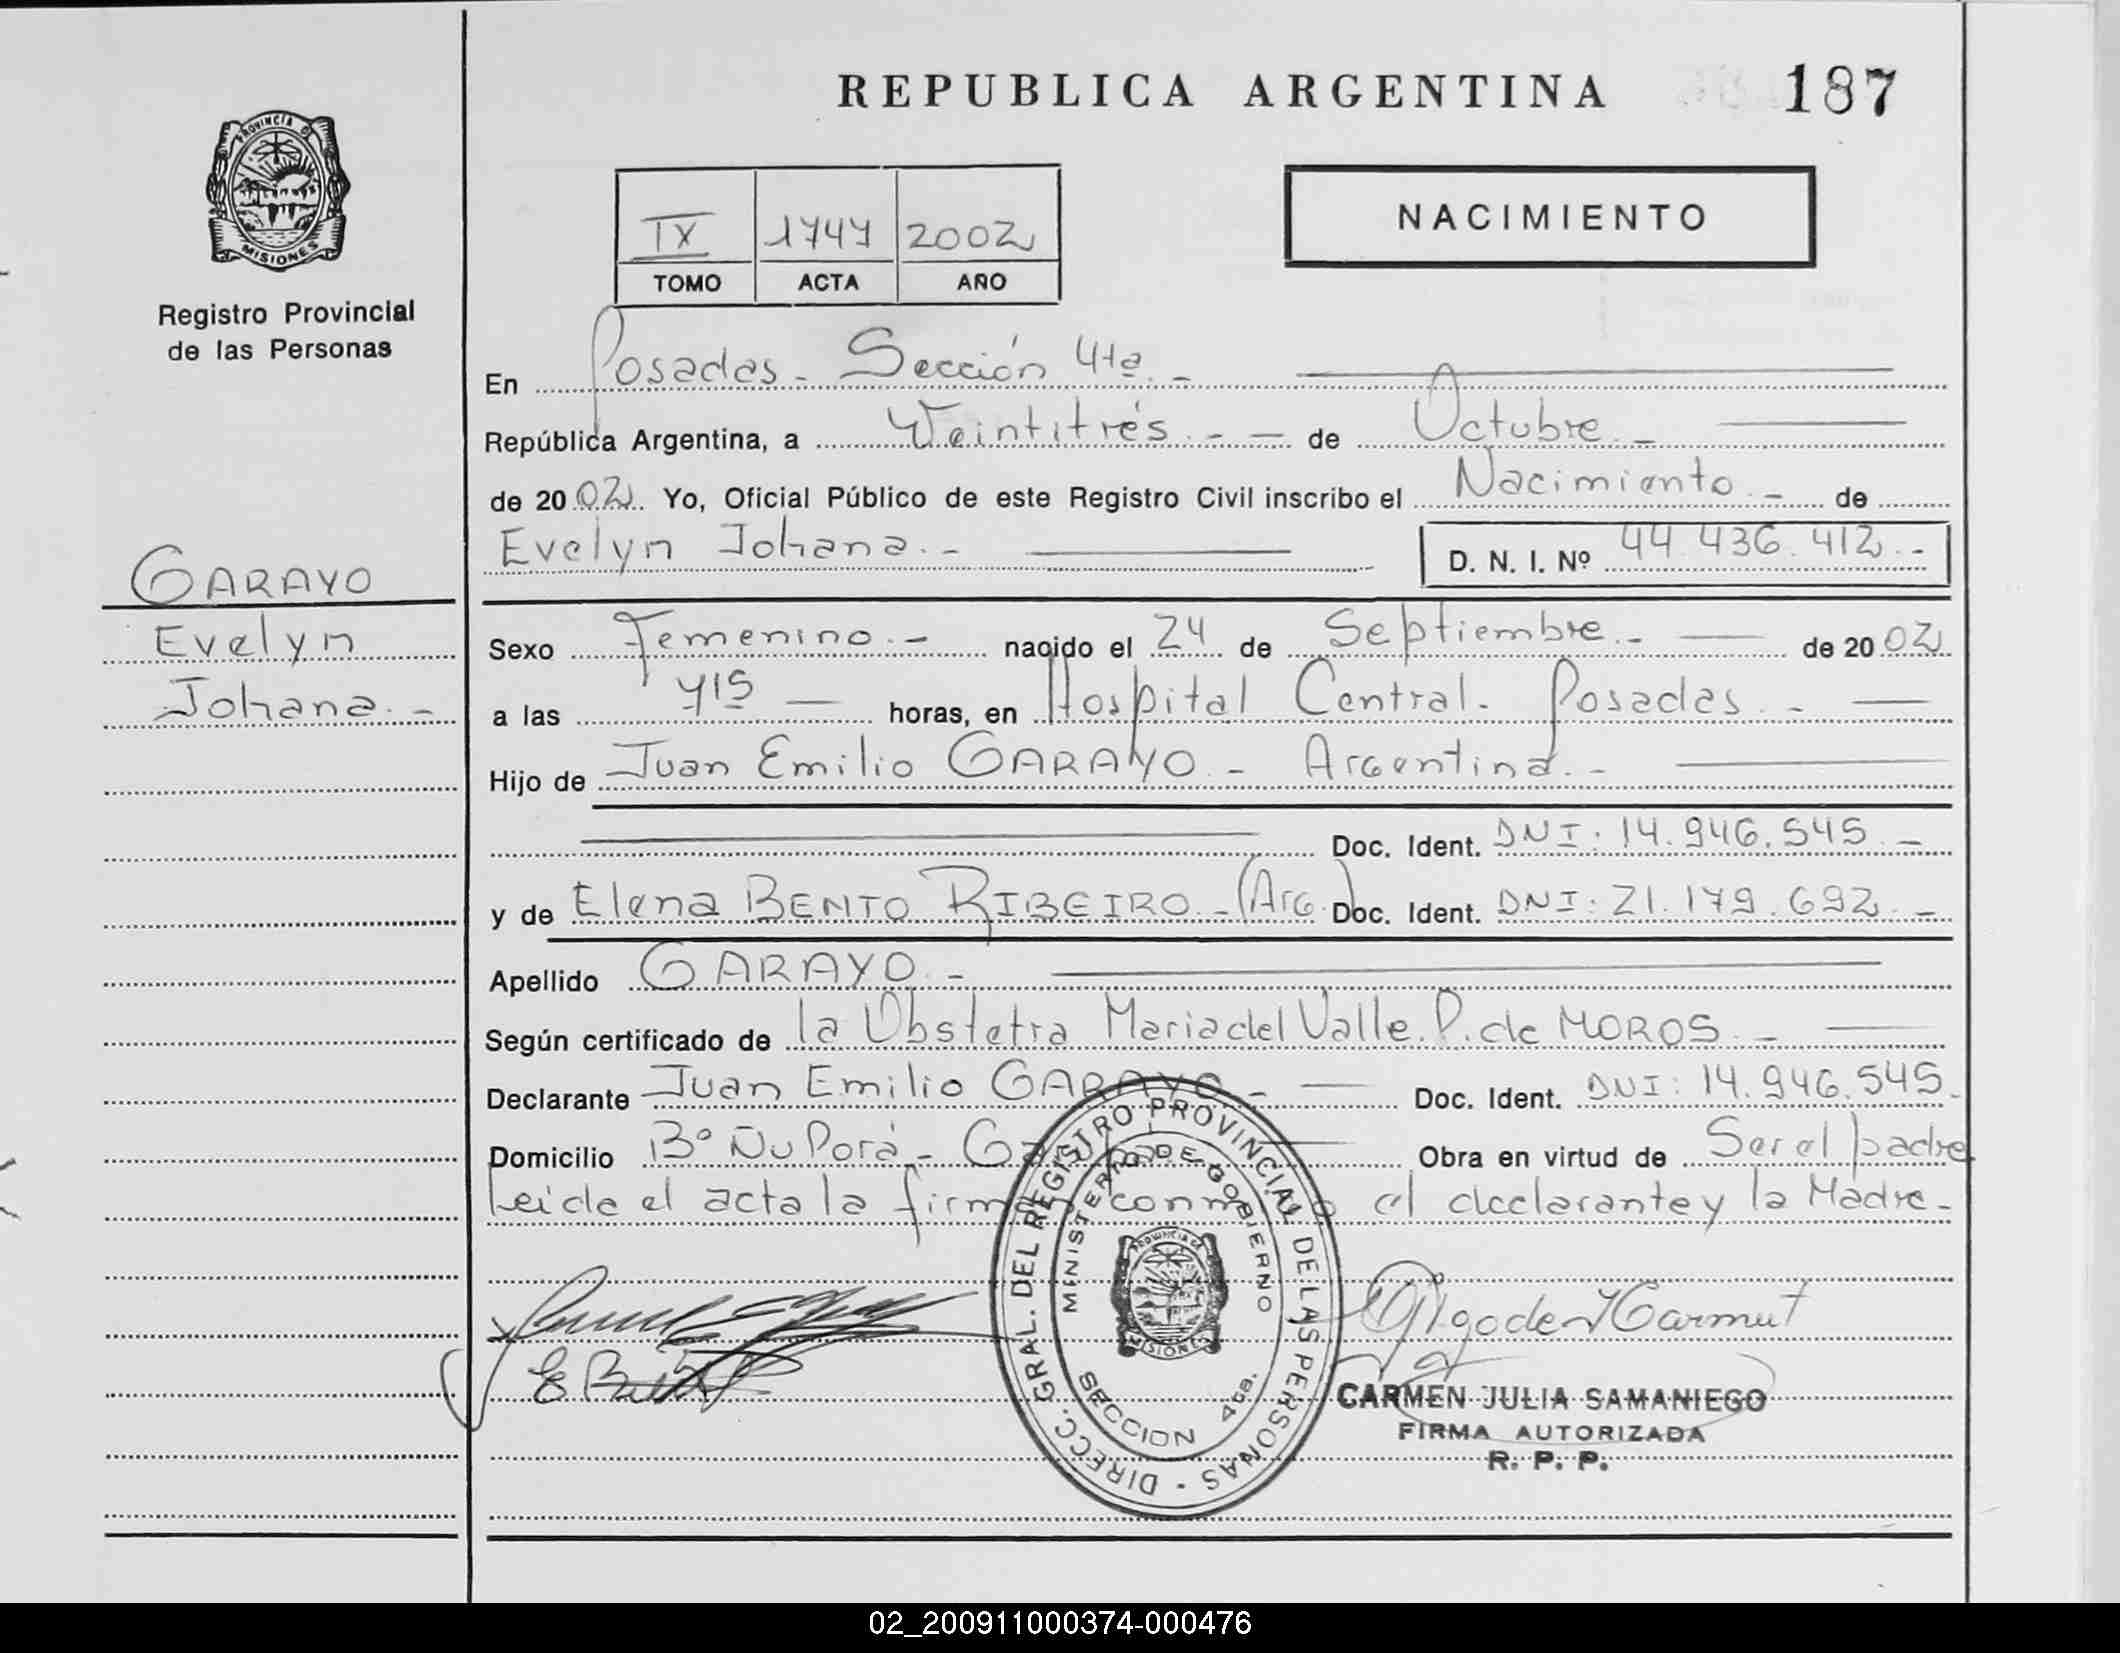 REPUBLICA ARGENTINA 187
PROVINCIA DE
MISIONES
Registro Provincial
de las Personas
NACIMIENTO
IX 1747 2002
TOMO ACTA AÑO
En Posadas - Sección 4ta. -
República Argentina, a Veintitrés. - - de Octubre. -
de 2002. Yo, Oficial Público de este Registro Civil inscribo el Nacimiento. - de
Evelyn Johana. - D. N. I. Nº 44.436.412. -
GARAYO
Evelyn
Johana. -
Sexo Femenino. - nacido el 24 de Septiembre. - de 2002
a las 715 horas, en Hospital Central. Posadas. -
Hijo de Juan Emilio GARAYO. - Argentina. -
Doc. Ident. DNI: 14.946.545. -
y de Elena BENTO RIBEIRO - (Arg.) Doc. Ident. DNI: 21.179.692. -
Apellido GARAYO. -
Según certificado de la Obstetra Maria del Valle. P. de MOROS. -
Declarante Juan Emilio GARAYO. - Doc. Ident. DNI: 14.946.545. -
Domicilio Bº Ñu Porá - Obra en virtud de Ser el padre
Leida el acta la firman conmigo el declarante y la Madre. -
DIRECC. GRAL. DEL REGISTRO PROVINCIAL DE LAS PERSONAS -
MINISTERIO DE GOBIERNO
PROVINCIA DE
MISIONES
SECCION 4ta.
CARMEN JULIA SAMANIEGO
FIRMA AUTORIZADA
R. P. P.
02_200911000374-000476